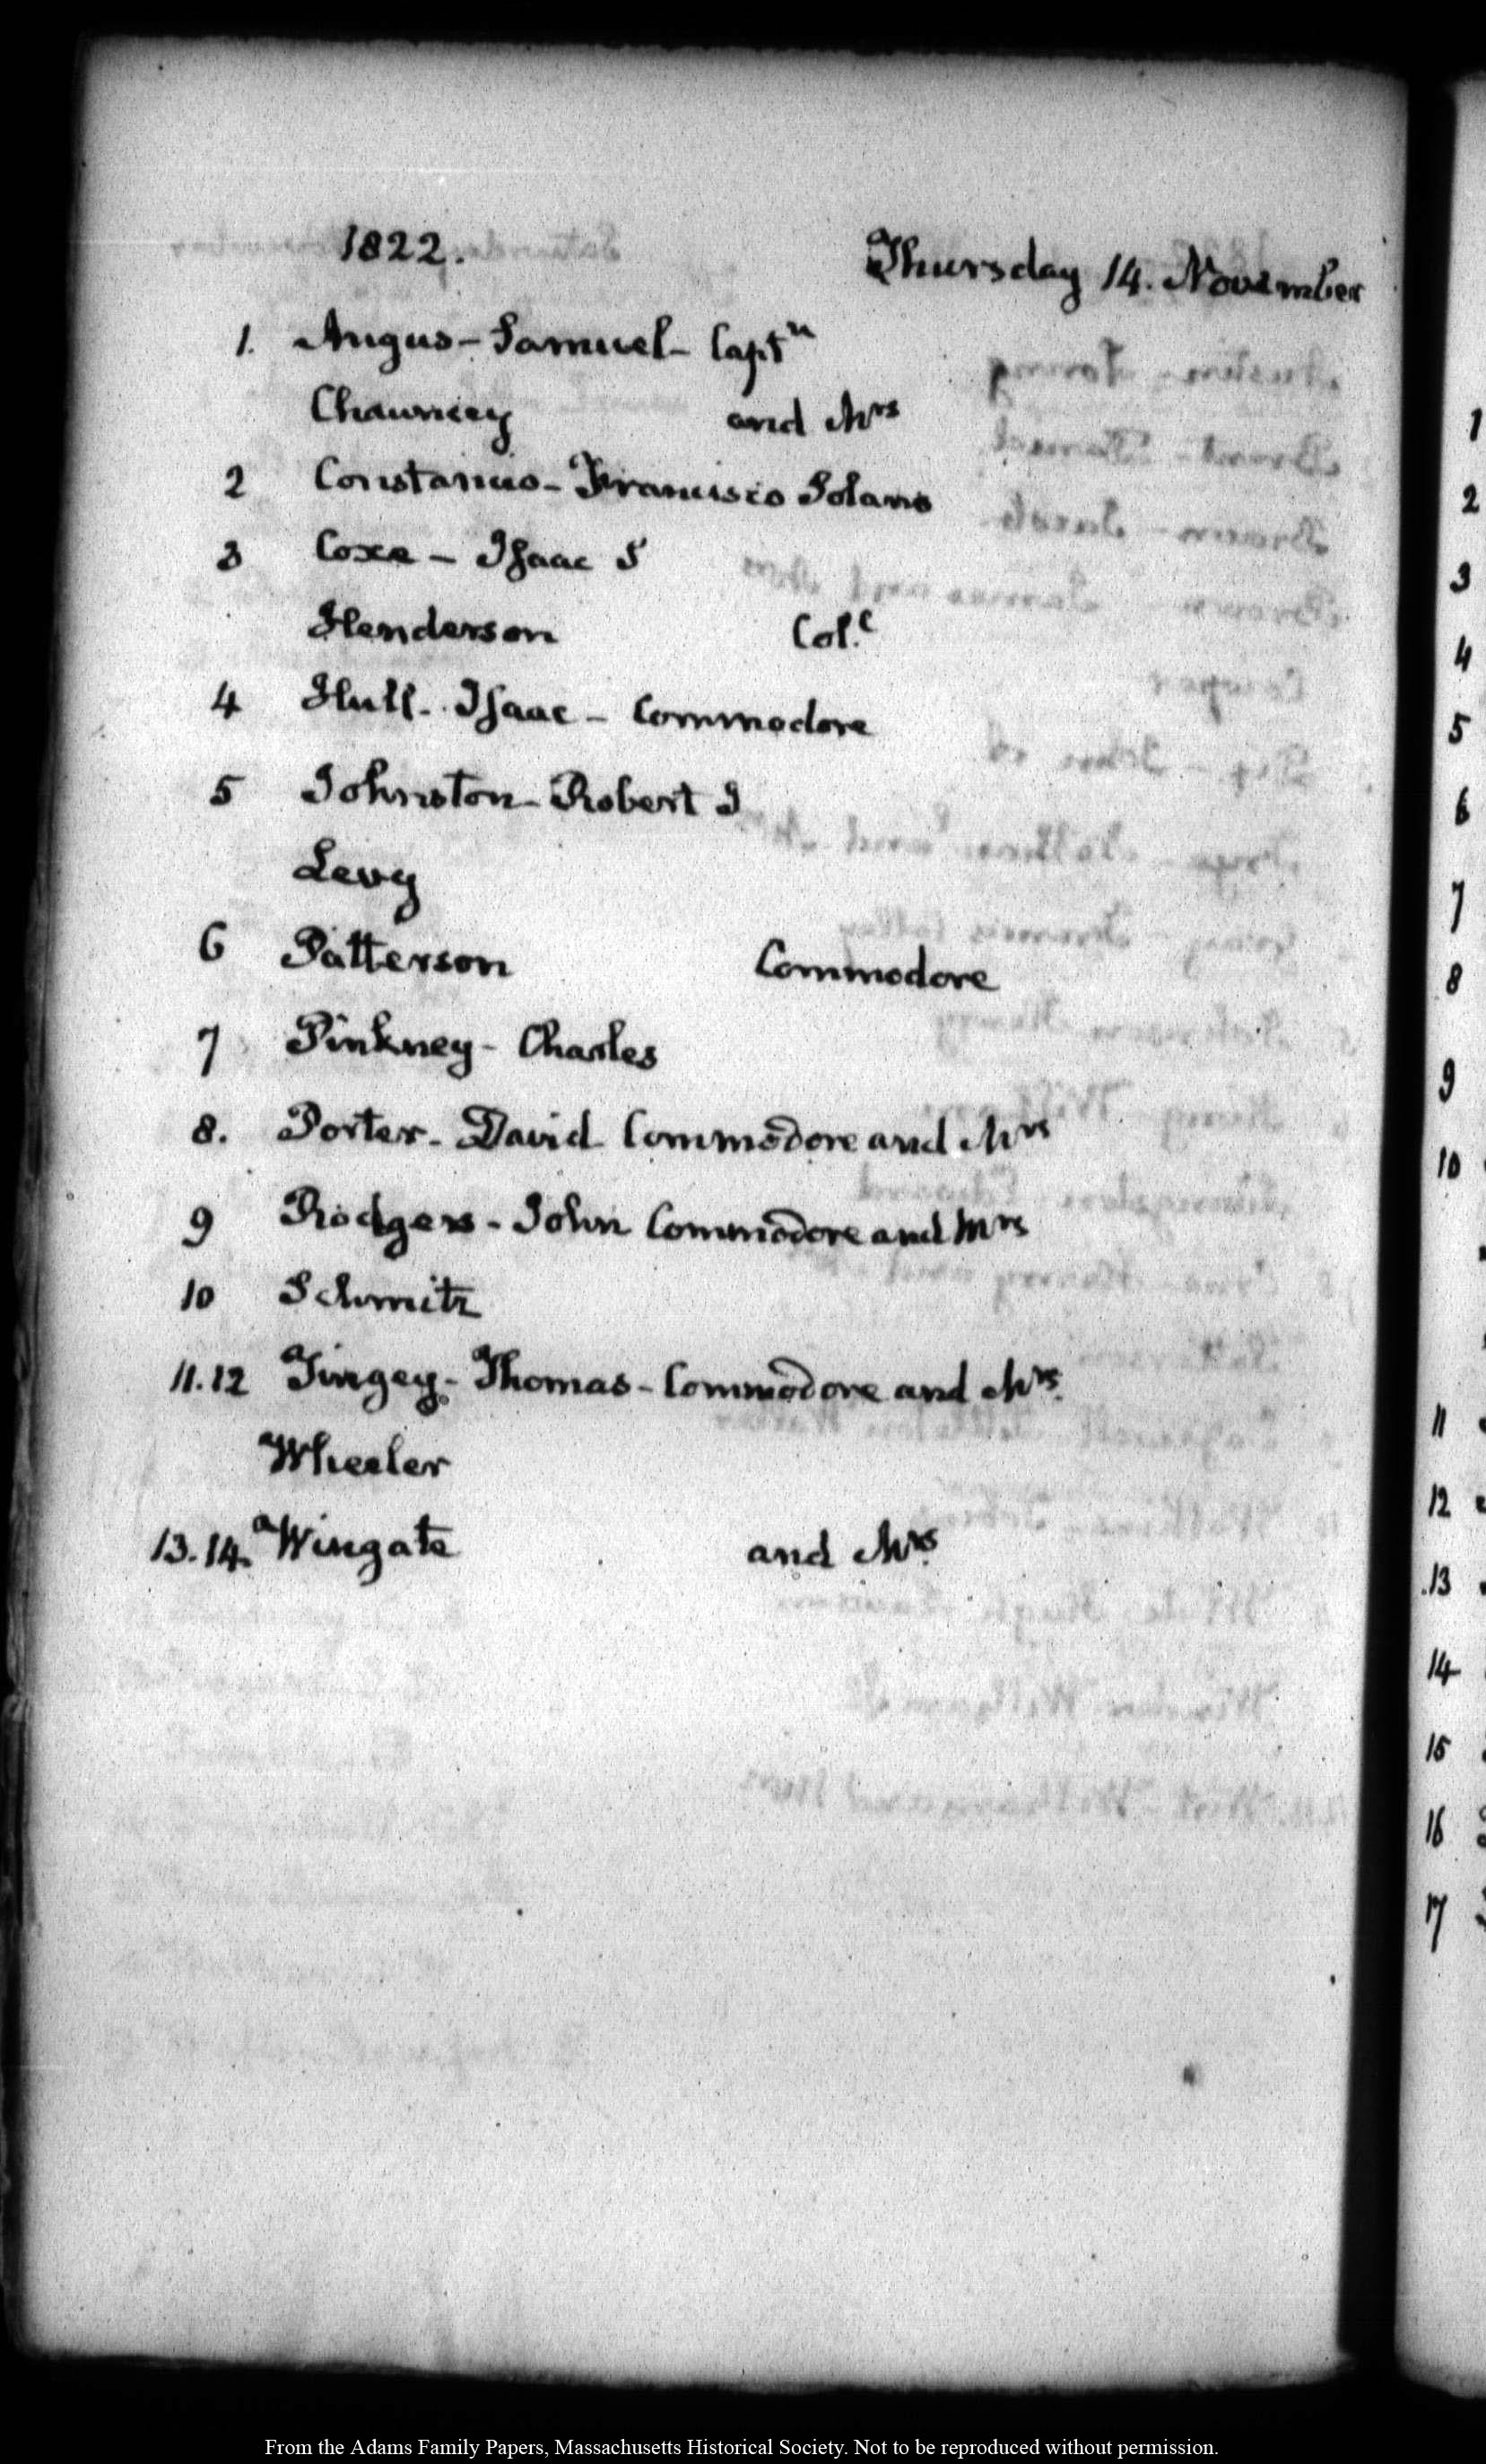 1822. Thursday 14. November
1. Angus - Samuel - Captn
Chauncey and Mrs
2 Constancio - Francisco Solano
3 Coxe - Isaac S
Henderson Col.
4 Hull - Isaac - Commodore
5 Johnston - Robert J
Levy
6 Patterson Commodore
7 Pinkney - Charles
8. Porter - David Commodore and Mrs
9 Rodgers - John Commodore and Mrs
10 Schmitz
11.12 Tingey - Thomas - Commodore and Mrs.
Wheeler
13.14. Wingate and Mrs.
1
2
3
4
5
6
7
8
9
10
11
12
13
14
15
16
17
From the Adams Family Papers, Massachusetts Historical Society. Not to be reproduced without permission.